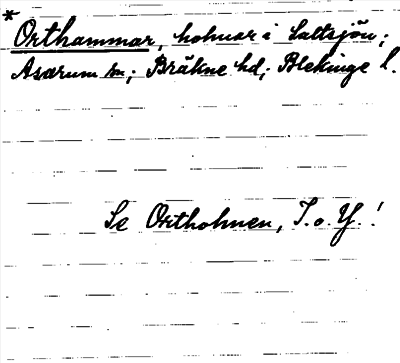 *
Orthammar, holmar i Saltsjön;
Asarum sn; Bräkne hd; Blekinge l.
Se Ortholmen, T. o. Y!